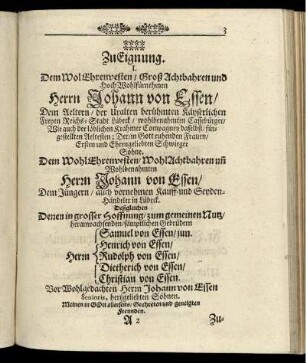 3
ZuEignung.
I.
Dem WolEhrenvesten / Groß Achtbahren und
Hoch Wohlfürnehmen
Herrn Johann von Essen /
Dem Aeltern / der Uralten berühmten Käyserlichen
Freyen Reichs-Stadt Lübeck / wohlbenahmten Cassebürger /
Wie auch der löblichen Krahmer Compagney daselbst / für-
gestellten Aeltesten; Der in Gott ruhenden Frauen /
Ersten und Eherngeliebten Schwieger
Sohne.
Dem WohlEhrenvesten / WohlAchtbahren uñ
Wohlbenahmten
Herrn Johann von Essen /
Dem Jüngern / auch vornehmen Kauf- und Seyden-
Händeler in Lübeck.
Deßgleichen
Denen in grosser Hoffnung / zum gemeinen Nutz /
heranwachsenden / sämptlichen Gebrüdern
Samuel von Essen / jun.
Henrich von Essen /
Herrn Rudolph von Essen /
Dietherich von Essen /
Christian von Essen.
Vor Wohlgedachten Herrn Johann von Essen
Senioris, hertzgeliebten Söhnen.
Meinen in GOtt allerseits / Geehrten und geneigten
Freunden.
A 2
Zu-